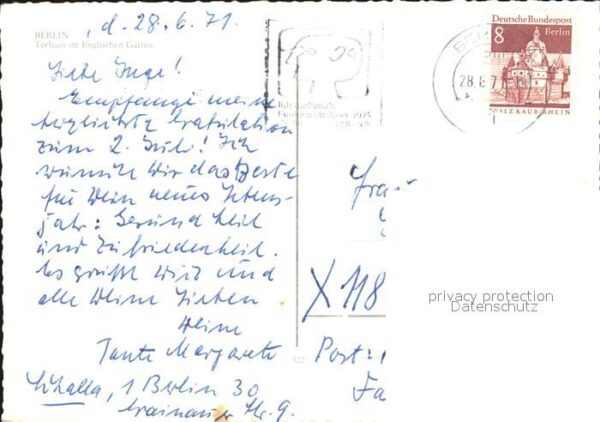 , d. 28.6.71.
BERLIN
Teehaus im Englischen Garten
Liebe Inge!
Empfange meine
herzlichste Gratulation
zum 2. Juli! Ich
wünsche Dir das Beste
für Dein neues Lebens-
jahr: Gesundheit
und Zufriedenheit.
Es grüßt Dich und
alle Deine Lieben
Deine
Tante Margarete
1 Berlin 30
Str. 9.
Internationale
1971
Deutsche Bundespost
8 Berlin
PFALZ KAUB/RHEIN
28.6.71
Frau
X 118
Post:
Fa
privacy protection
Datenschutz